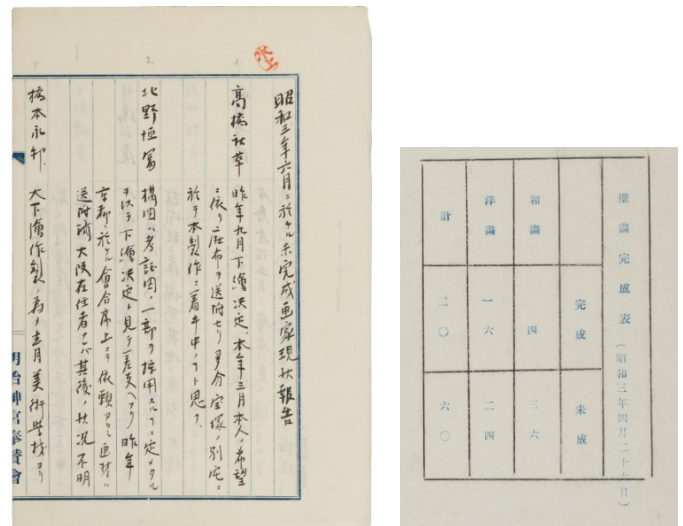 水上
昭和三年六月ニ於ケル未完成画家現状報告
1.
高橋秋華 昨年九月下繪決定、本年三月本人ノ希望
ニ依リ麻布ヲ送附セリ多分宝塚ノ別宅ニ
於テ本製作ニ着手中ノコト思フ
2.
北野恒富 構図ハ考証図ノ一部ヲ採用スルコトニ定メタル
ヲ以テ下繪決定ト見テ差支ヘナク 昨年
京都ニ於ケル會合席上ヨリ依頼アリシ画材ハ
送附済 大阪在住者ナレバ其後ノ状況不明
3.
橋本永邦 大下繪作製ノ為メ去月美術学校ヨリ
明治神宮奉賛會
壁畫完成表(昭和三年四月二十六日)
完成 未成
和畫 四 三六
洋畫 一六 二四
計 二〇 六〇